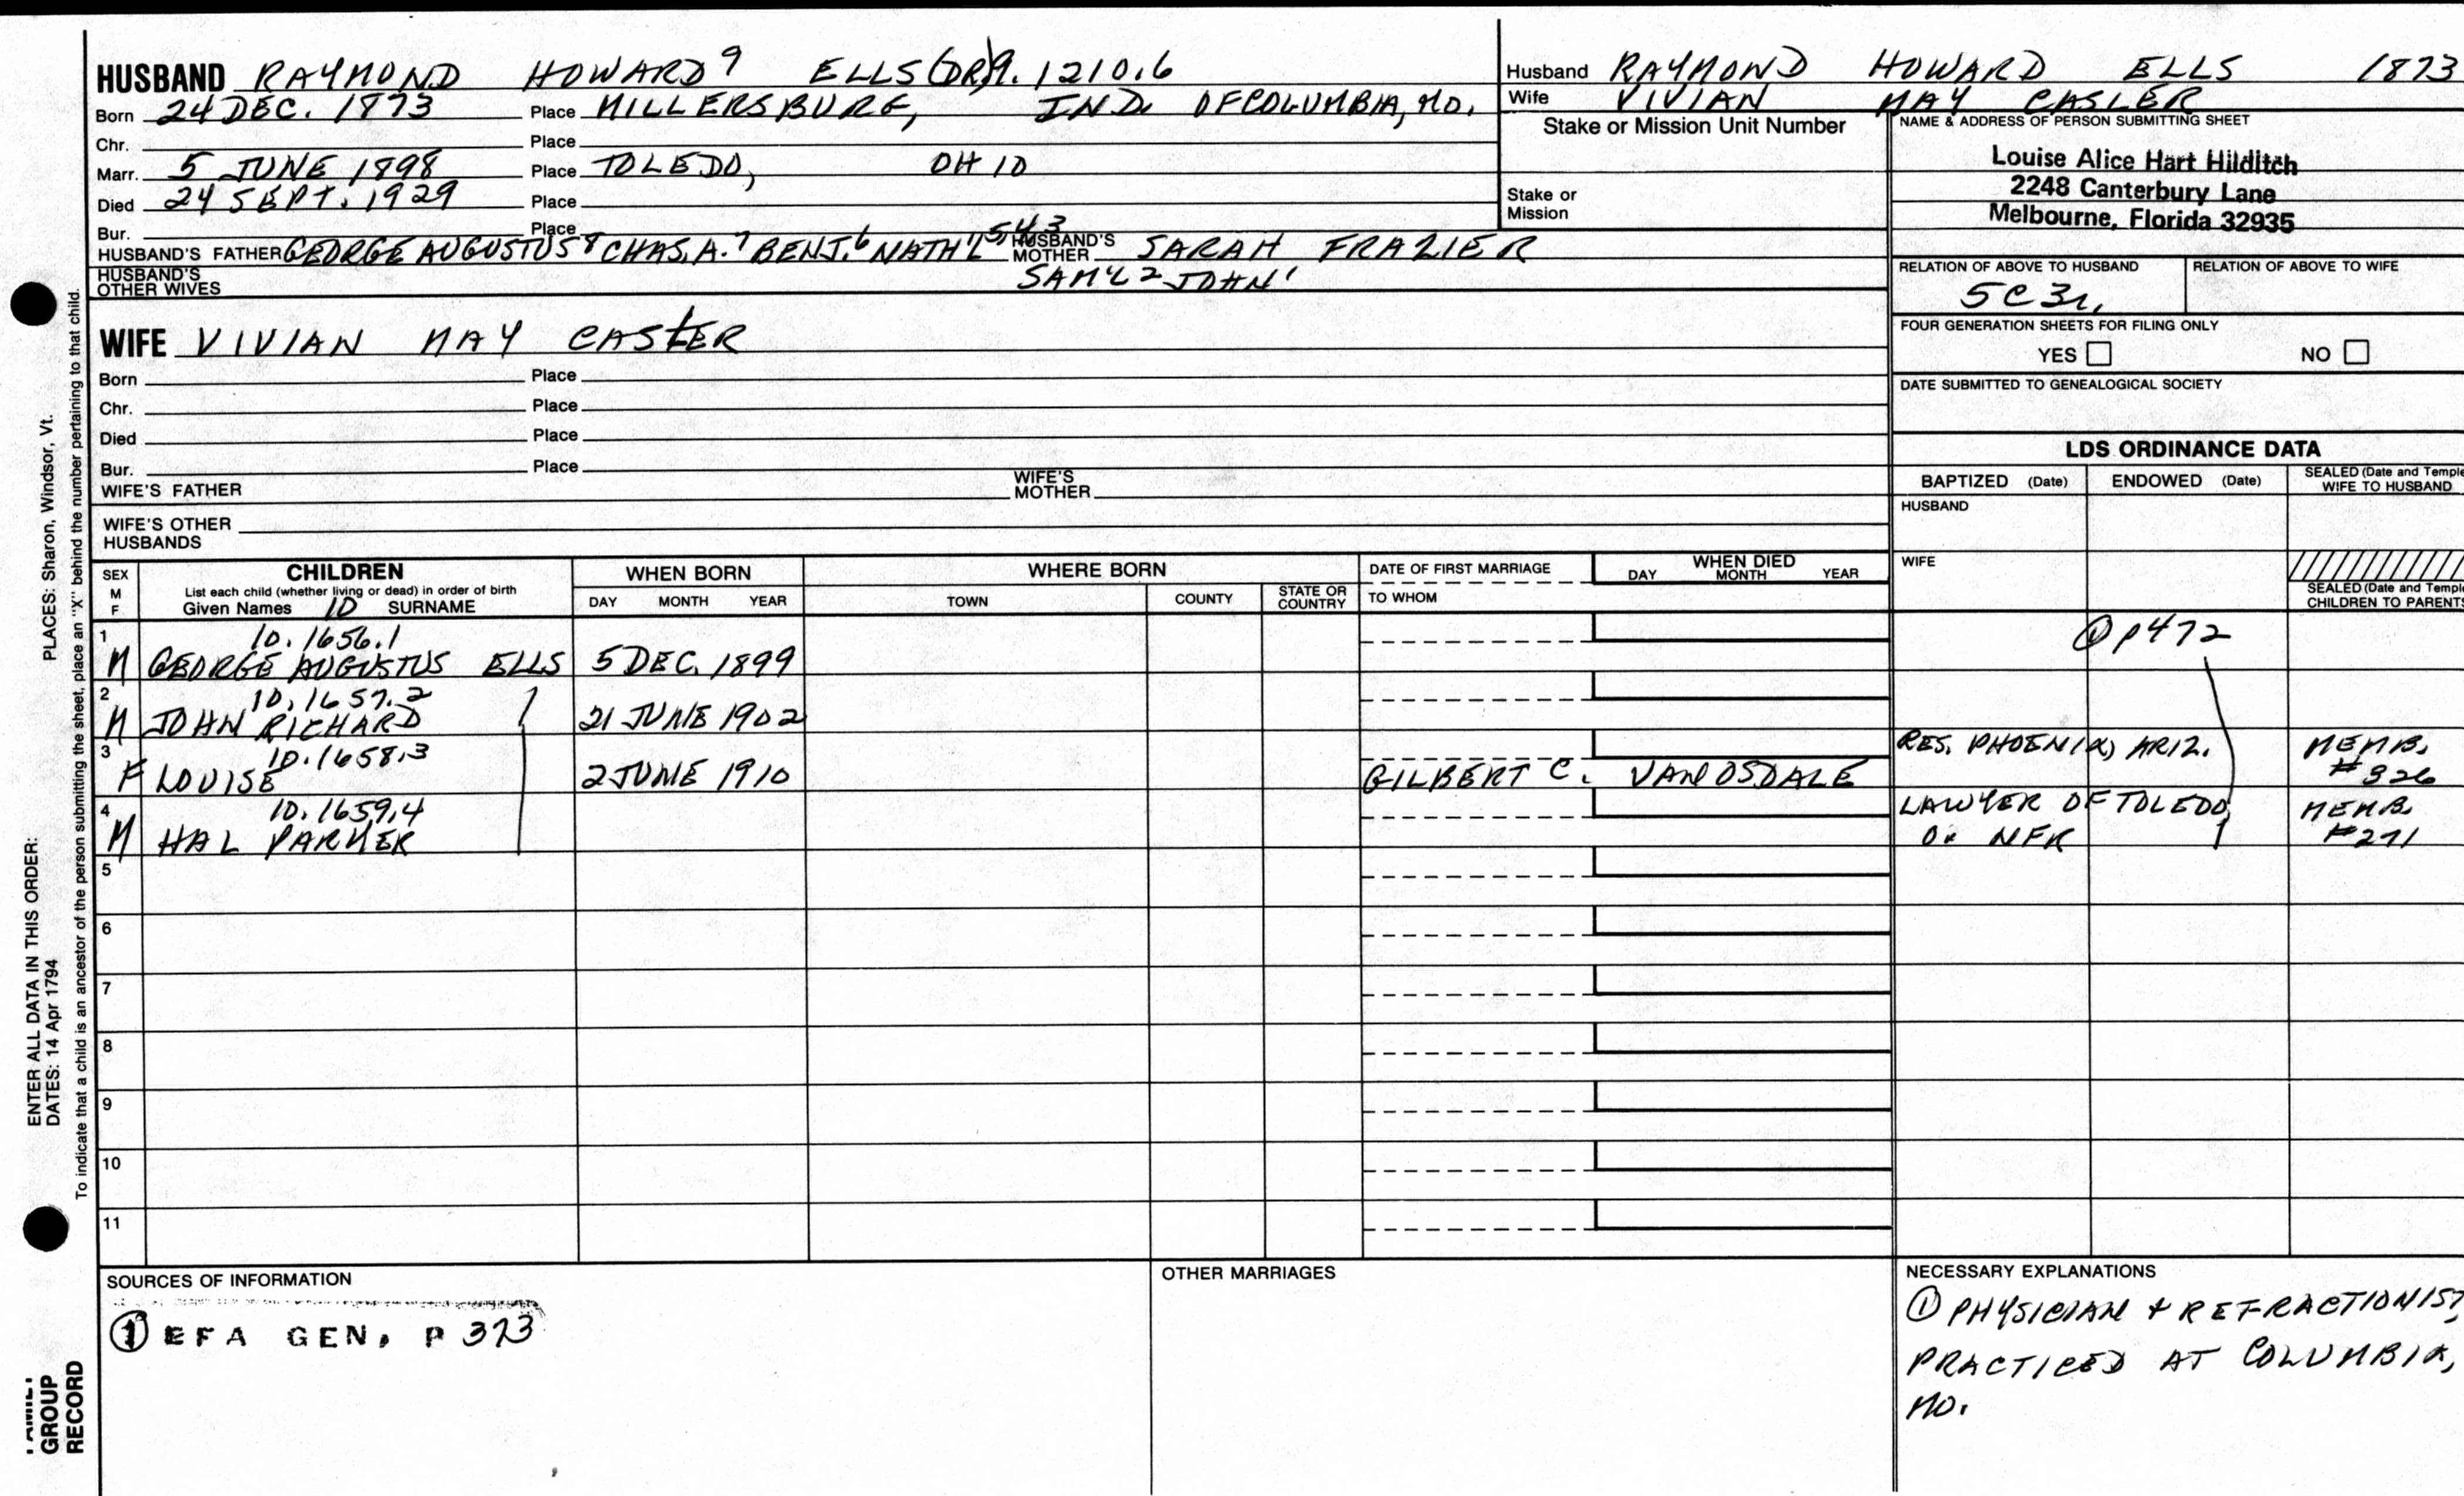 HUSBAND RAYMOND HOWARD⁹ ELLS (DR) 9.1210.6
Born 24 DEC. 1873 Place MILLERSBURG, IND. OF COLUMBIA, MO.
Chr. Place
Marr. 5 JUNE 1898 Place TOLEDO, OHIO
Died 24 SEPT. 1929 Place
Bur. Place
HUSBAND'S FATHER GEORGE AUGUSTUS⁸ CHAS. A.⁷ BENJ.⁶ NATH'L⁵ ⁴ ³ HUSBAND'S MOTHER SARAH FRAZIER
HUSBAND'S OTHER WIVES SAM'L² JOHN¹
WIFE VIVIAN MAY CASLER
Born Place
Chr. Place
Died Place
Bur. Place
WIFE'S FATHER WIFE'S MOTHER
WIFE'S OTHER HUSBANDS
Husband RAYMOND HOWARD ELLS 1873
Wife VIVIAN MAY CASLER
Stake or Mission Unit Number
Stake or Mission
NAME & ADDRESS OF PERSON SUBMITTING SHEET
Louise Alice Hart Hilditch
2248 Canterbury Lane
Melbourne, Florida 32935
RELATION OF ABOVE TO HUSBAND RELATION OF ABOVE TO WIFE
5C3r.
FOUR GENERATION SHEETS FOR FILING ONLY
YES NO
DATE SUBMITTED TO GENEALOGICAL SOCIETY
LDS ORDINANCE DATA
BAPTIZED (Date) ENDOWED (Date) SEALED (Date and Temple
WIFE TO HUSBAND
HUSBAND
WIFE
SEALED (Date and Temple
CHILDREN TO PARENTS
SEX
M
F
CHILDREN
List each child (whether living or dead) in order of birth
Given Names 10 SURNAME
WHEN BORN
DAY MONTH YEAR
WHERE BORN
TOWN COUNTY STATE OR COUNTRY
DATE OF FIRST MARRIAGE
TO WHOM
WHEN DIED
DAY MONTH YEAR
1 10.1656.1 ① p472
M GEORGE AUGUSTUS ELLS 5 DEC. 1899
2 10.1657.2
M JOHN RICHARD 21 JUNE 1902
3 10.1658.3 RES. PHOENIX, ARIZ. MEMB.
F LOUISE 2 JUNE 1910 GILBERT C. VANOSDALE #326
4 10.1659.4 LAWYER OF TOLEDO, MEMB.
M HAL PARKER O. NFR #271
5
6
7
8
9
10
11
SOURCES OF INFORMATION
① EFA GEN, P 373
OTHER MARRIAGES
NECESSARY EXPLANATIONS
① PHYSICIAN + REFRACTIONIST,
PRACTICED AT COLUMBIA,
MO.
ENTER ALL DATA IN THIS ORDER: PLACES: Sharon, Windsor, Vt.
DATES: 14 Apr 1794
To indicate that a child is an ancestor of the person submitting the sheet, place an "X" behind the number pertaining to that child.
FAMILY
GROUP
RECORD